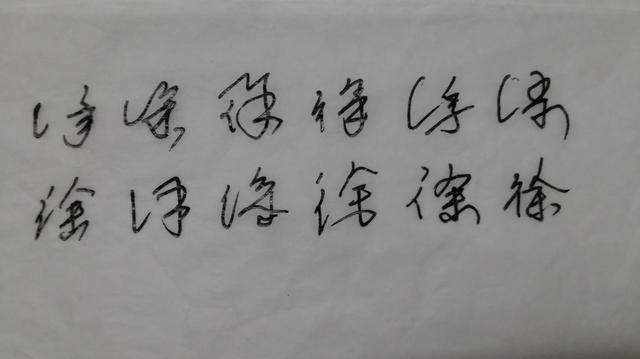 徐徐徐徐徐徐
徐徐徐徐徐徐